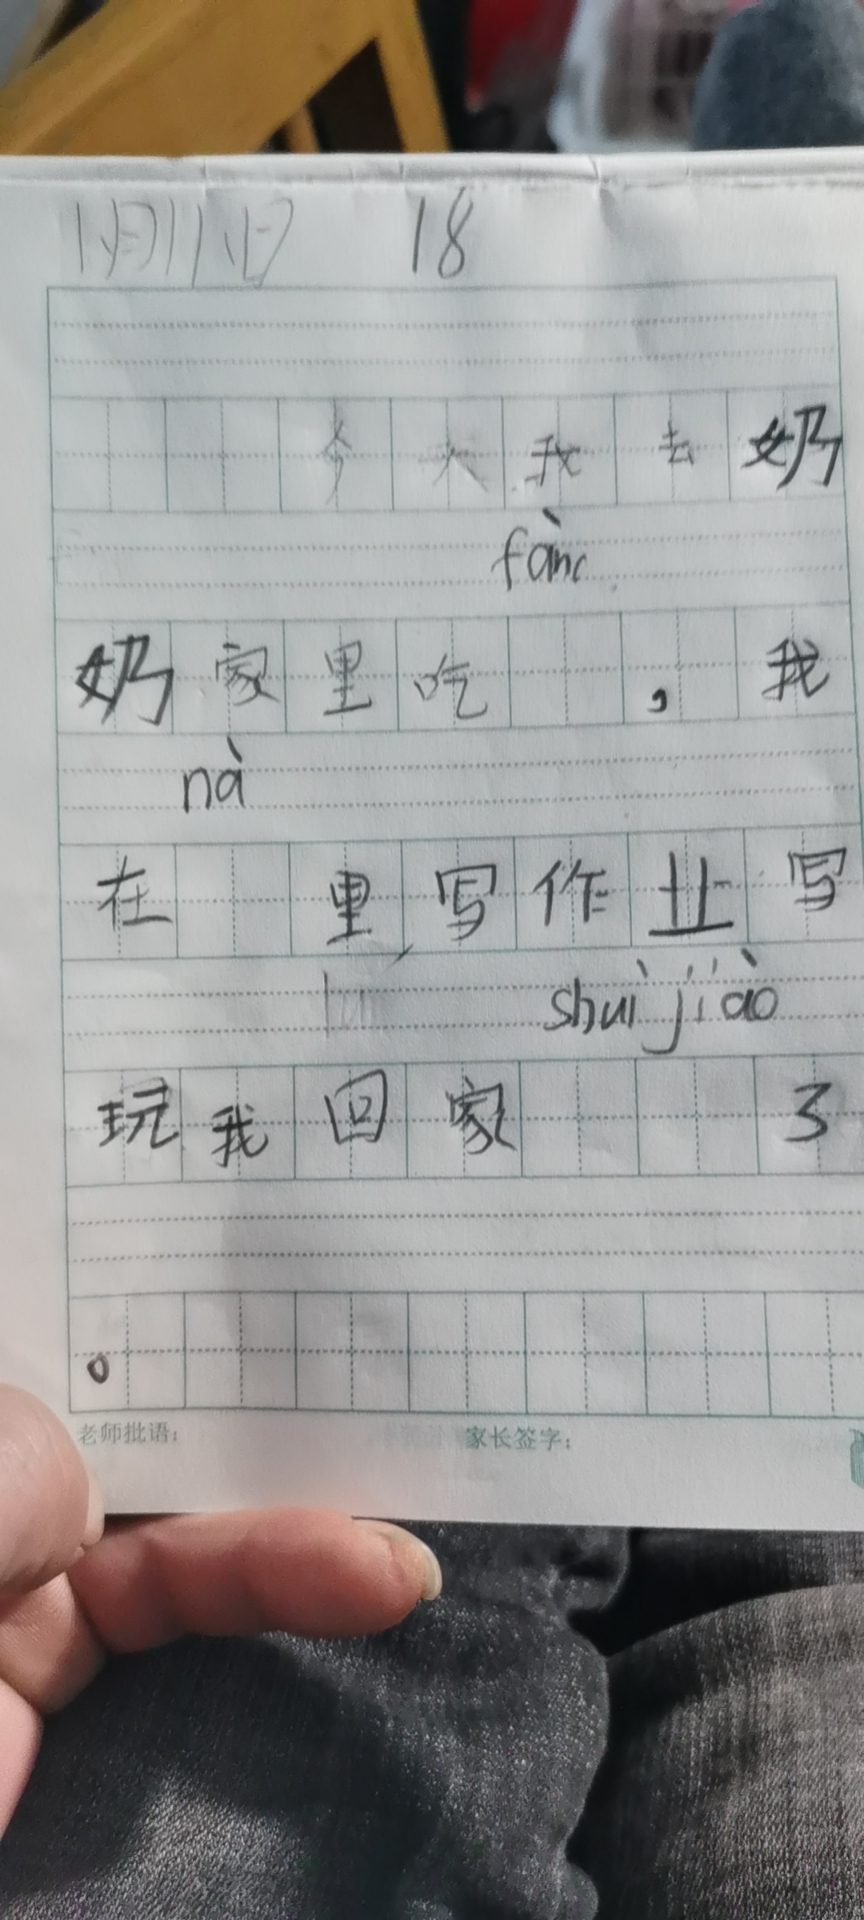 1月11日 18
今天我去奶
fàn
奶家里吃，我
nà
在里写作业写
shuì jiào
玩我回家了
。
老师批语： 家长签字：